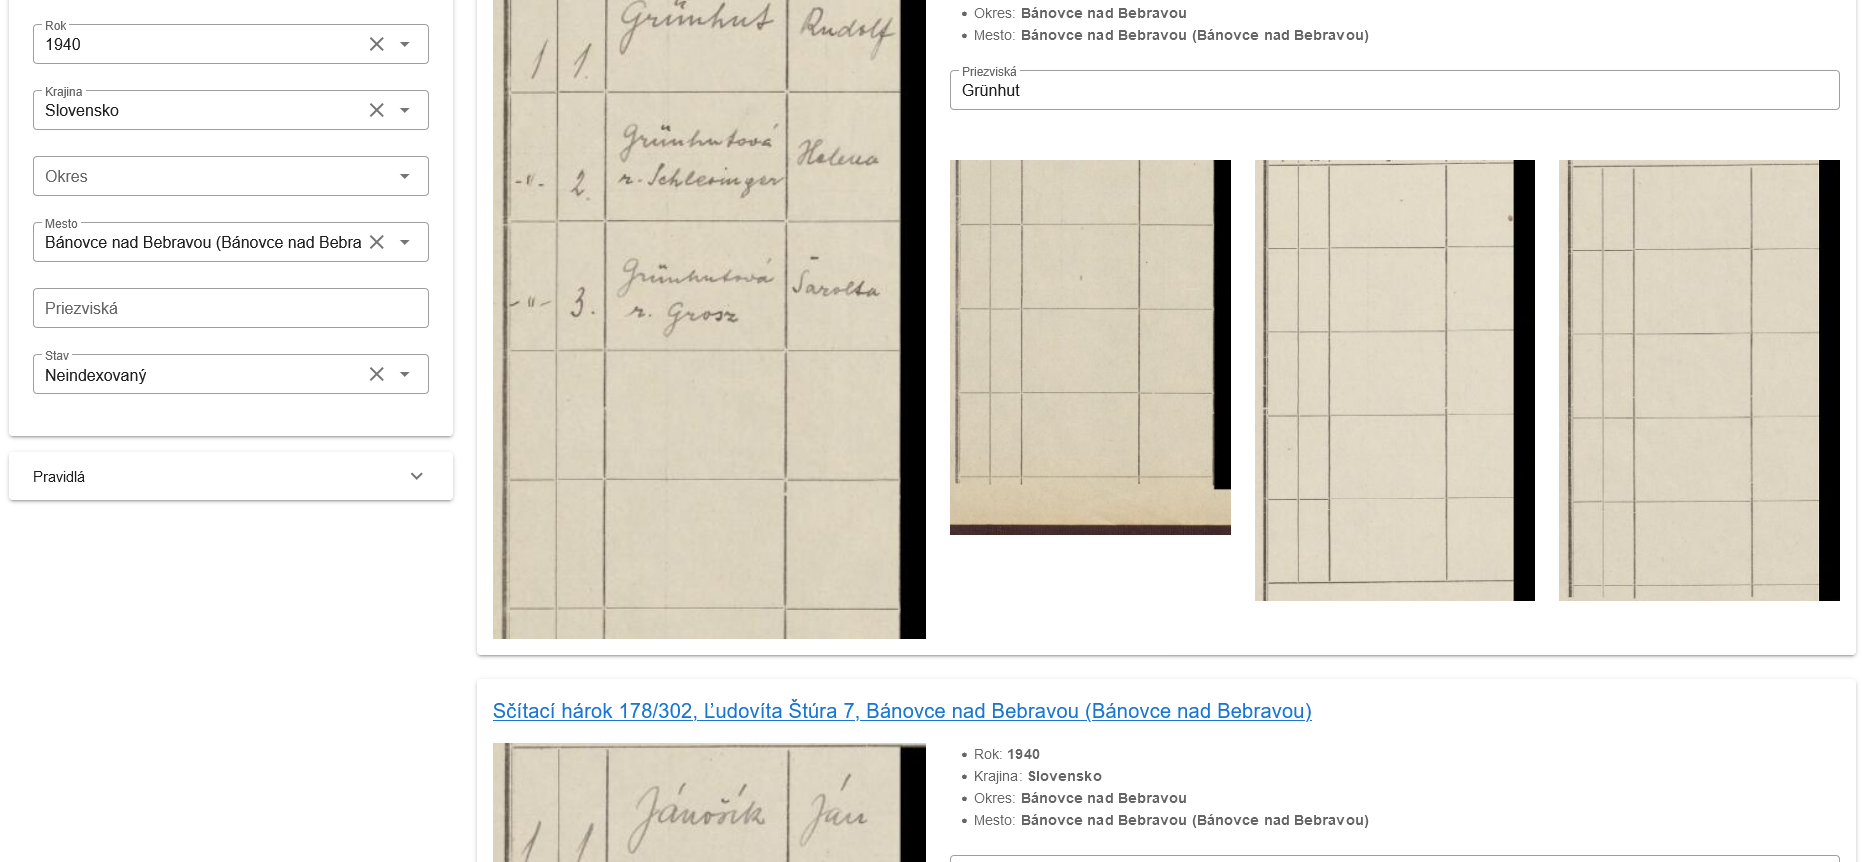 Rok
1940
Krajina
Slovensko
Okres
Mesto
Bánovce nad Bebravou (Bánovce nad Bebra
Priezviská
Stav
Neindexovaný
Pravidlá
1 1. Grünhut Rudolf
-"- 2. Grünhutová Helena
r. Schlesinger
-"- 3. Grünhutová Šarolta
r. Grosz
Okres: Bánovce nad Bebravou
Mesto: Bánovce nad Bebravou (Bánovce nad Bebravou)
Priezviská
Grünhut
Sčítací hárok 178/302, Ľudovíta Štúra 7, Bánovce nad Bebravou (Bánovce nad Bebravou)
1 1 Jánošík Ján
Rok: 1940
Krajina: Slovensko
Okres: Bánovce nad Bebravou
Mesto: Bánovce nad Bebravou (Bánovce nad Bebravou)